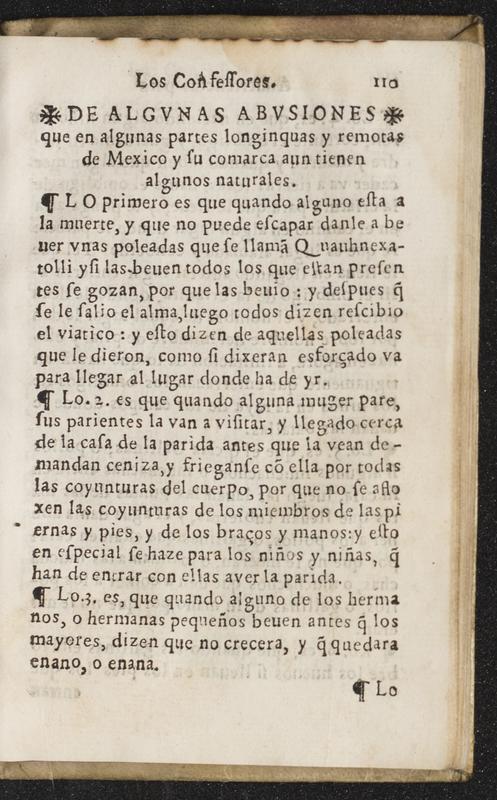 Los Confeſſores. 110
❋ DE ALGVNAS ABVSIONES ❋
que en algunas partes longinquas y remotas
de Mexico y ſu comarca aun tienen
algunos naturales.
¶ LO primero es que quando alguno eſta a
la muerte, y que no puede eſcapar danle a be
uer vnas poleadas que ſe llamã Quauhnexa-
tolli y ſi las beuen todos los que eſtan preſen
tes ſe gozan, por que las beuio : y deſpues q̃
ſe le ſalio el alma, luego todos dizen reſcibio
el viatico : y eſto dizen de aquellas poleadas
que le dieron, como ſi dixeran esforçado va
para llegar al lugar donde ha de yr.
¶ Lo. 2. es que quando alguna muger pare,
ſus parientes la van a viſitar, y llegado cerca
de la caſa de la parida antes que la vean de-
mandan ceniza, y frieganſe cõ ella por todas
las coyunturas del cuerpo, por que no ſe aflo
xen las coyunturas de los miembros de las pi
ernas y pies, y de los braços y manos: y eſto
en eſpecial ſe haze para los niños y niñas, q̃
han de entrar con ellas aver la parida.
¶ Lo.3. es, que quando alguno de los herma
nos, o hermanas pequeños beuen antes q̃ los
mayores, dizen que no crecera, y q̃ quedara
enano, o enana.
¶ Lo